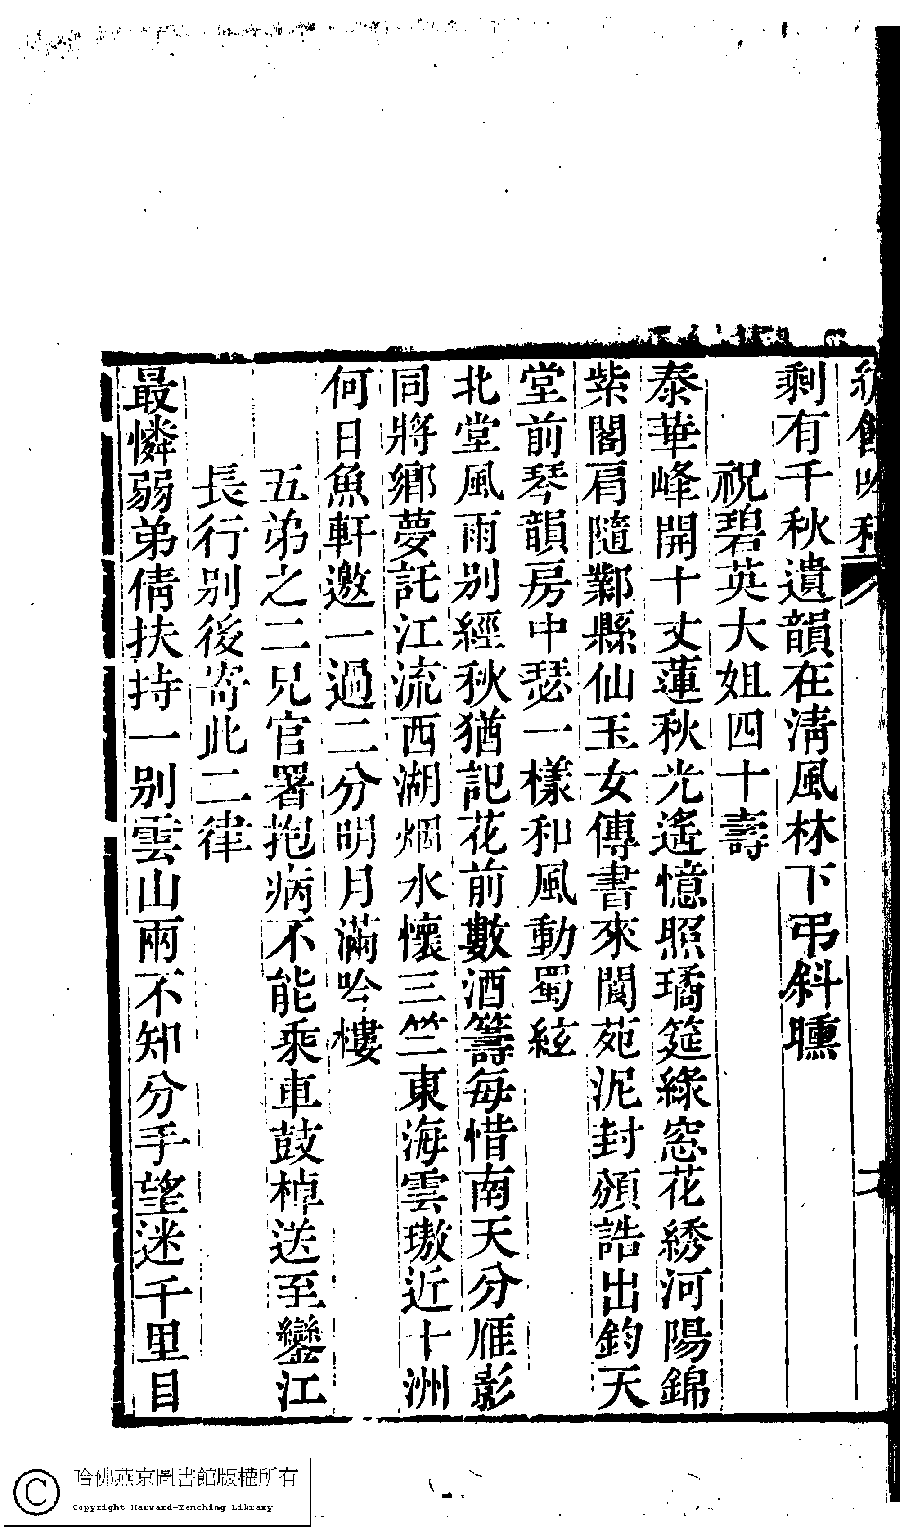 剩有千秋遺韻在清風林下弔斜曛
祝碧英大姐四十壽
泰華峰開十丈蓮秋光遙憶照璚筵綠窓花綉河陽錦
紫閣肩隨鄴縣仙玉女傳書來閬苑泥封頒誥出鈞天
堂前琴韻房中瑟一樣和風動蜀絃
北堂風雨别經秋猶記花前數酒籌每惜南天分雁影
同將鄉夢託江流西湖烟水懷三竺東海雲璈近十洲
何日魚軒邀一過二分明月滿吟樓
五弟之二兄官署抱病不能乘車鼓棹送至鑾江
長行别後寄此二律
最憐弱弟倩扶持一别雲山兩不知分手望迷千里目
哈佛燕京圖書館版權所有
Copyright Harvard-Yenching Library